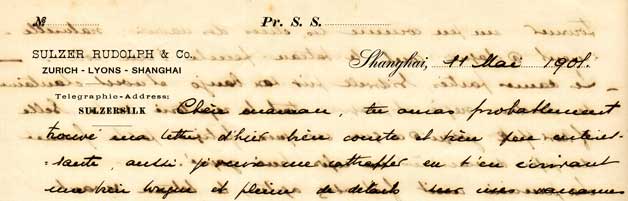 No Pr. S. S.
SULZER RUDOLPH & Co.,
ZURICH - LYONS - SHANGHAI
Shanghai, 11 Mai 1901.
Telegraphic-Address:
SULZERSILK
Chère maman, tu auras probablement
trouvé ma lettre d'hier bien courte et bien peu intéres-
sante, aussi je veux me rattraper en t'en écrivant
une bien longue et pleine de détails sur mes vacances